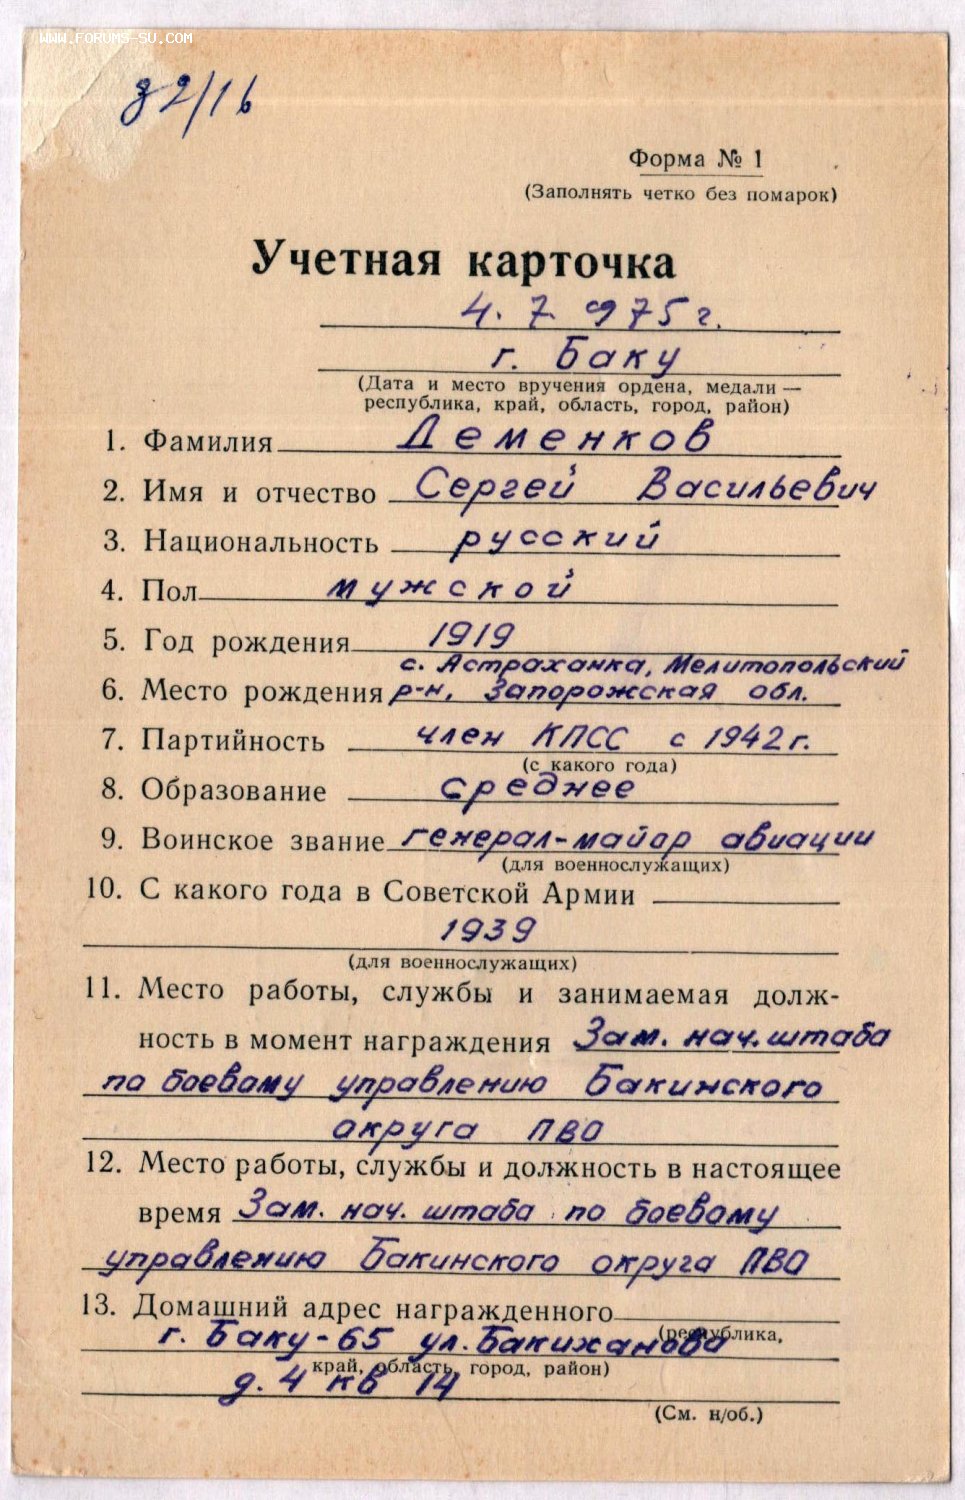 www.FORUMS-SU.COM
32/16
Форма № 1
(Заполнять четко без помарок)
Учетная карточка
4. 7. 975 г.
г. Баку
(Дата и место вручения ордена, медали —
республика, край, область, город, район)
1. Фамилия Деменков
2. Имя и отчество Сергей Васильевич
3. Национальность русский
4. Пол мужской
5. Год рождения 1919
с. Астраханка, Мелитопольский
6. Место рождения р-н, Запорожская обл.
7. Партийность член КПСС с 1942 г.
(с какого года)
8. Образование среднее
9. Воинское звание генерал-майор авиации
(для военнослужащих)
10. С какого года в Советской Армии
1939
(для военнослужащих)
11. Место работы, службы и занимаемая долж-
ность в момент награждения Зам. нач. штаба
по боевому управлению Бакинского
округа ПВО
12. Место работы, службы и должность в настоящее
время Зам. нач. штаба по боевому
управлению Бакинского округа ПВО
13. Домашний адрес награжденного
(республика,
г. Баку-65 ул. Бакиханова
край, область, город, район)
д. 4 кв 14
(См. н/об.)